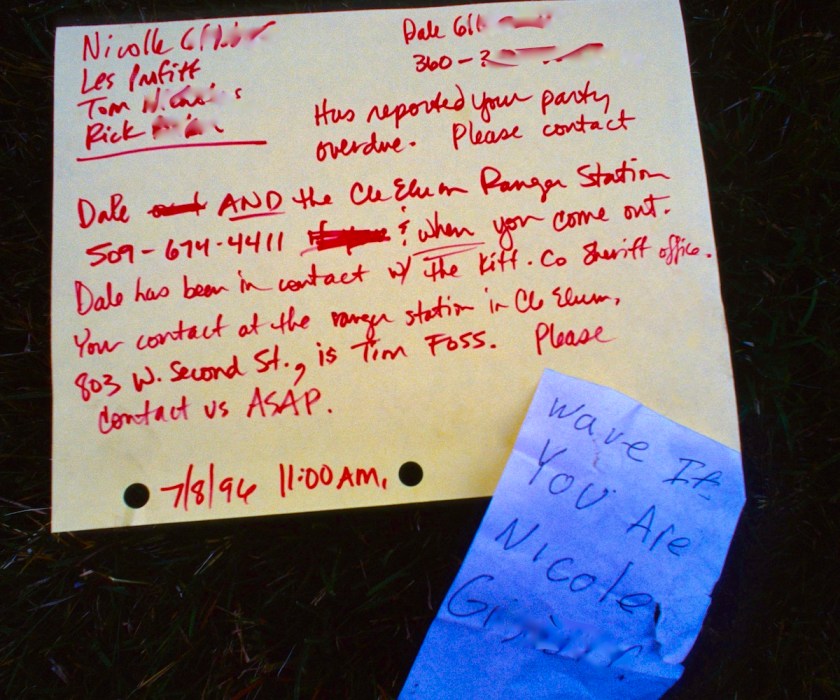 Nicolle
Les Profitt
Tom
Rick
Dale
360-
Has reported your party
overdue. Please contact
Dale AND the Cle Elum Ranger Station
509-674-4411 & when you come out.
Dale has been in contact w/ the Kitt. Co Sheriff office.
Your contact at the ranger station in Cle Elum,
803 W. Second St., is Tim Foss. Please
contact us ASAP.
7/8/96 11:00 AM.
Wave If
You Are
Nicole